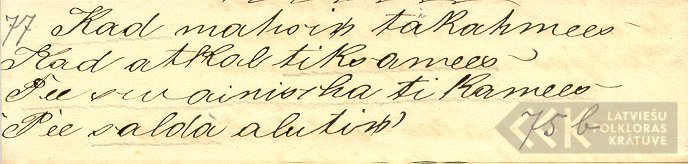 77 Kad mahsiņ täkahmees
Kad atkal tiksamees
Pee swainischa tikamees
Pee salda alutiņ 75 b
LATVIEŠU
FOLKLORAS
KRĀTUVE